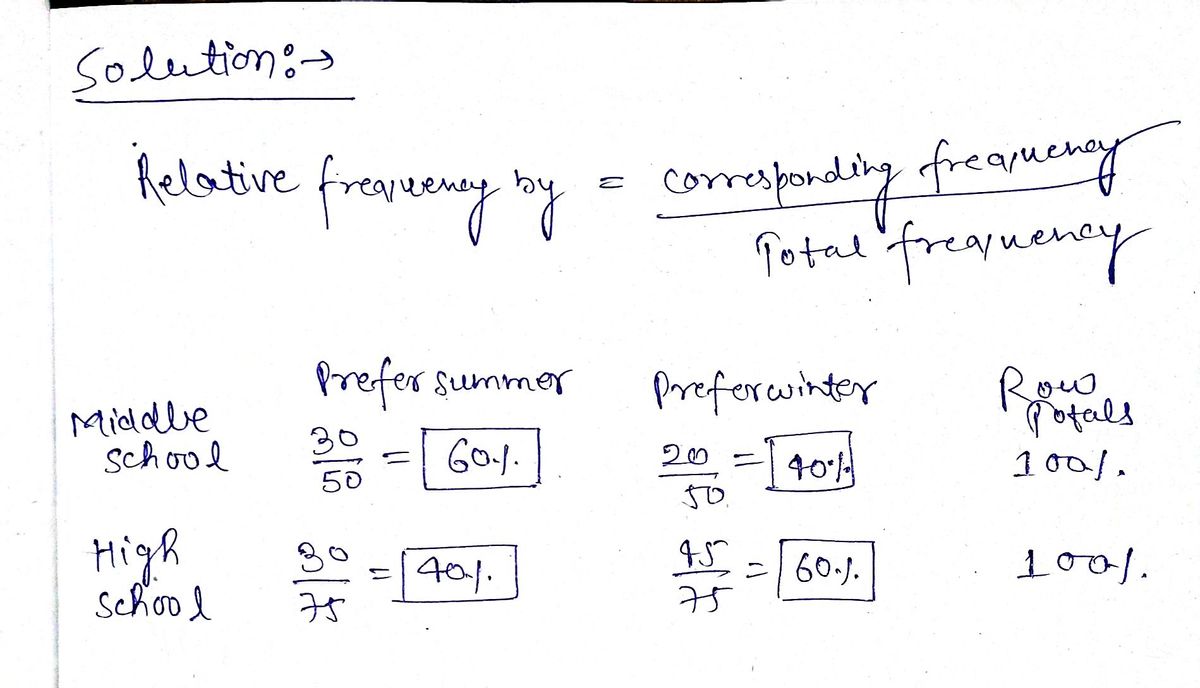 Solution:→
Relative frequency by = corresponding frequency
Total frequency
Prefer summer Prefer winter Row Totals
Middle school 30/50 = 60% 20/50 = 40% 100%
High school 30/75 = 40% 45/75 = 60% 100%